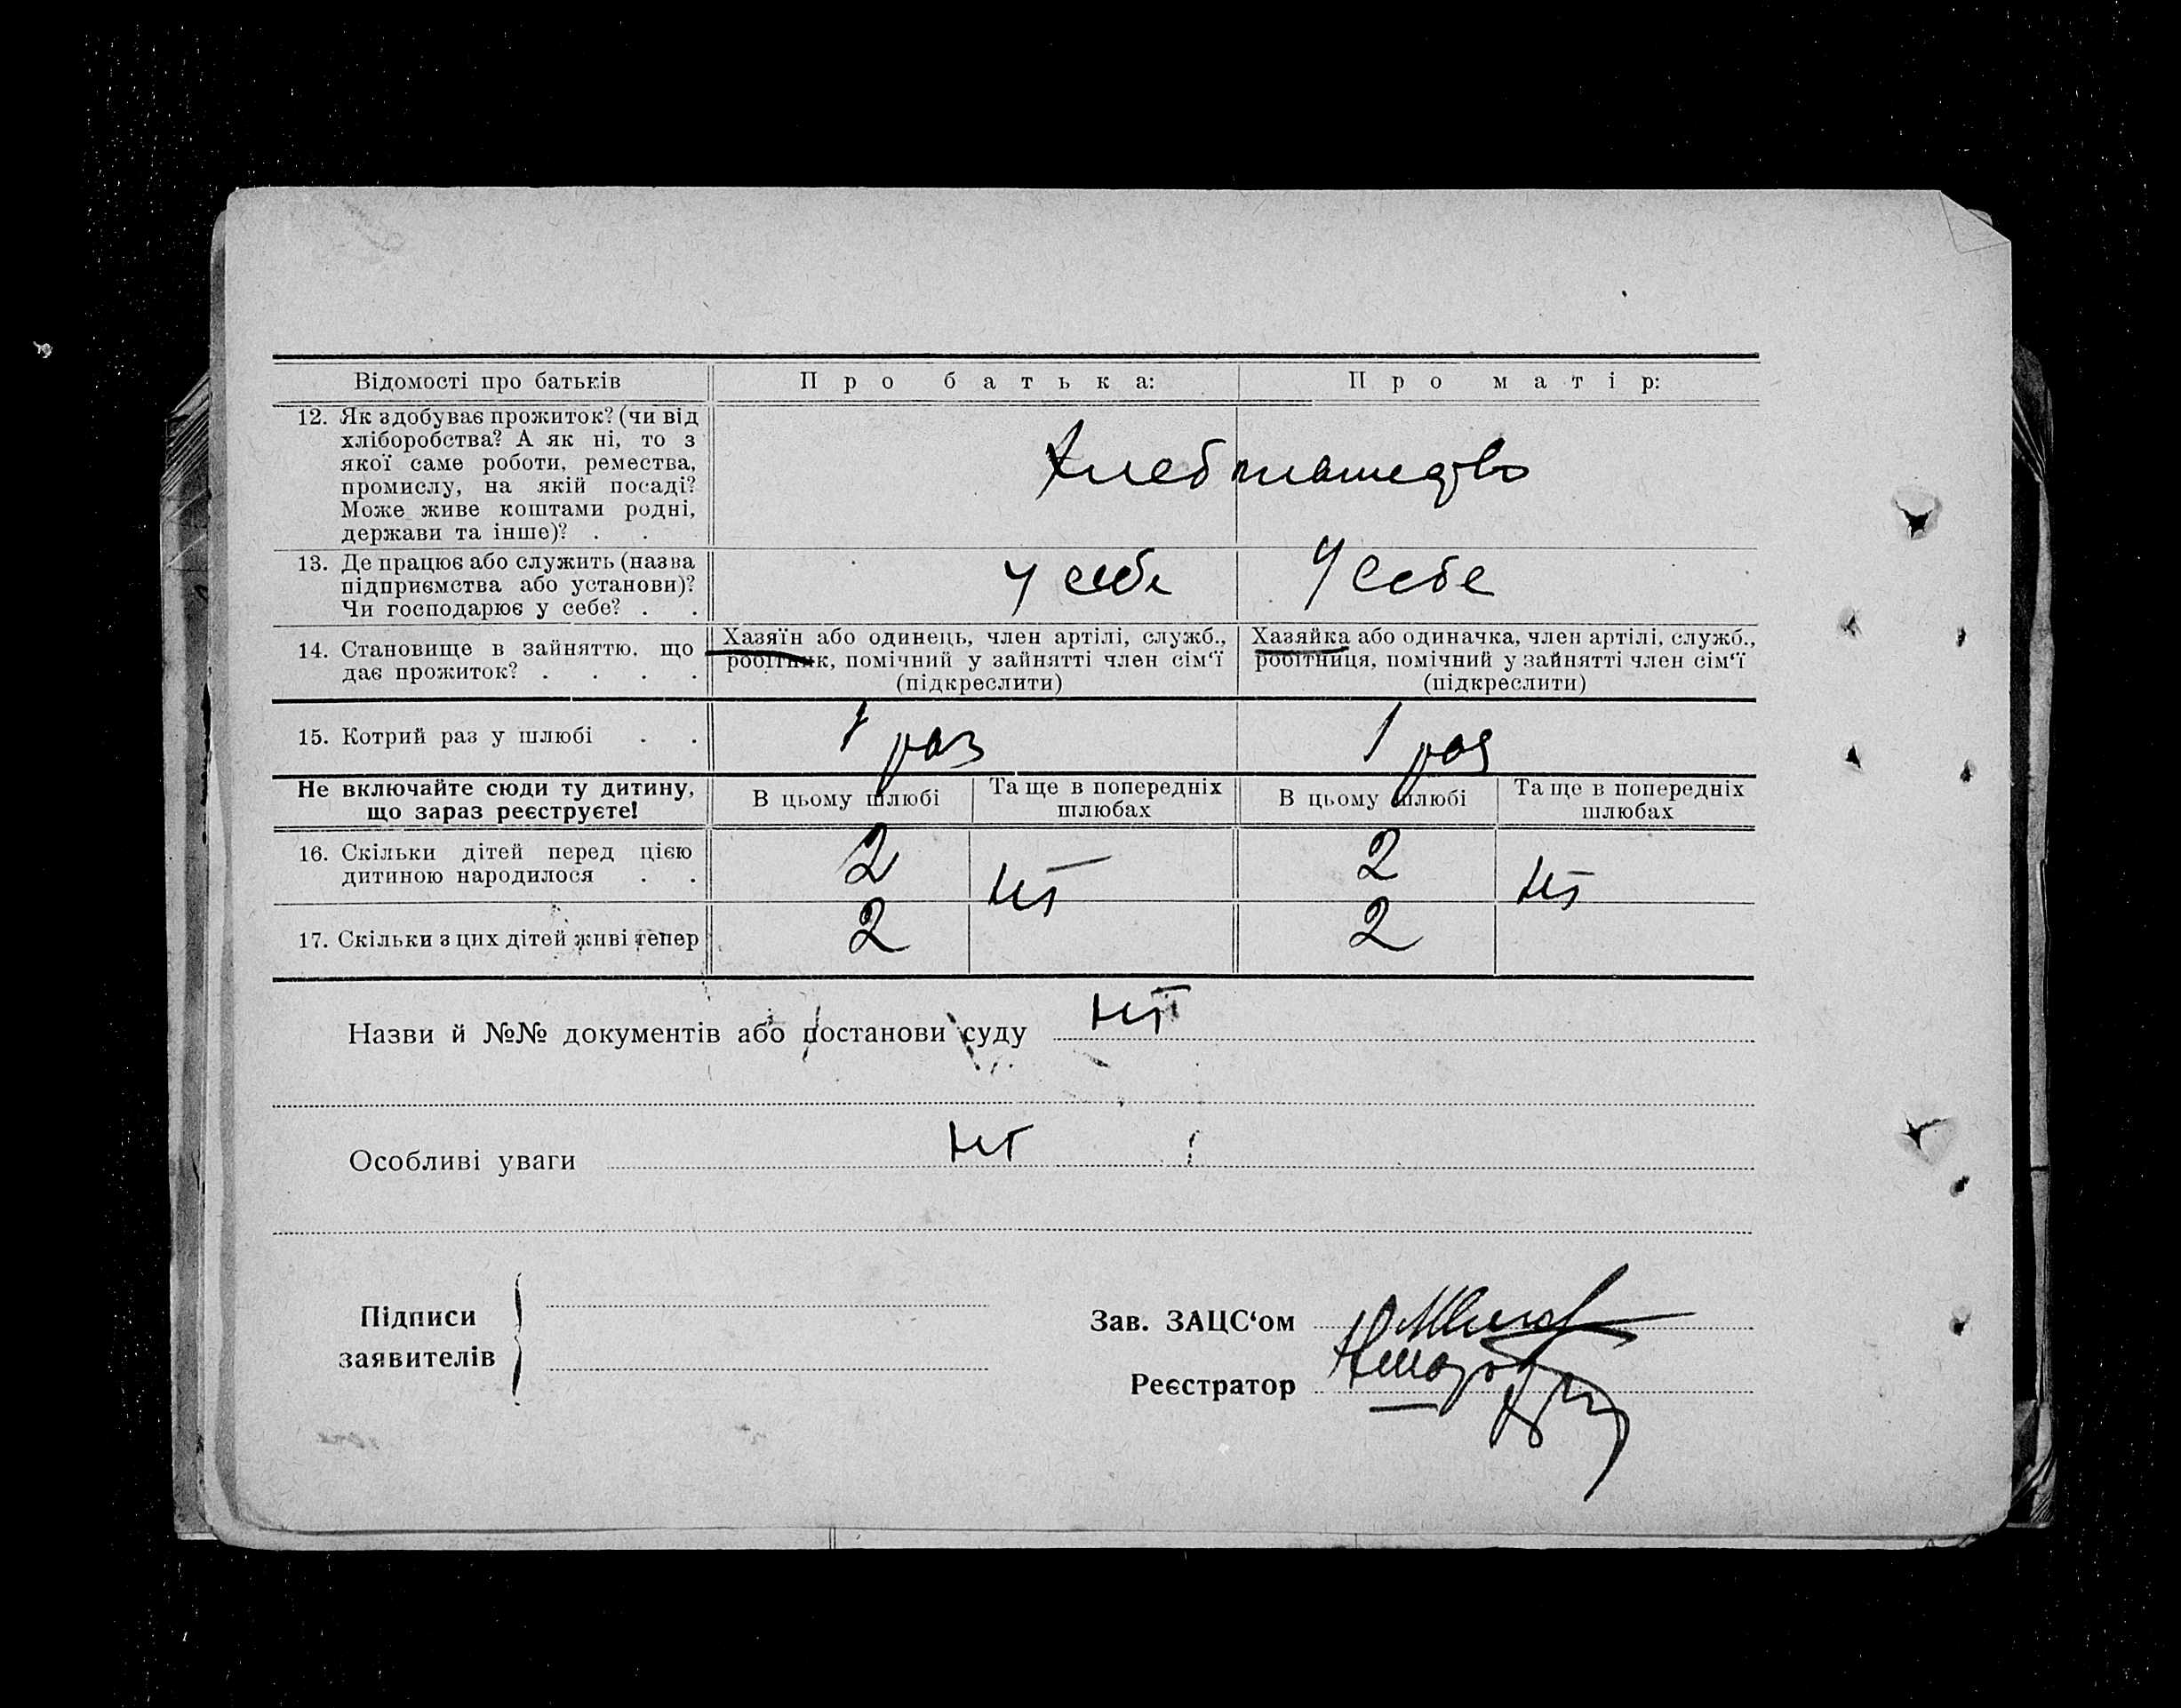 Відомості про батьків
Про батька:
Про матір:
12. Як здобуває прожиток? (чи від
хліборобства? А як ні, то з
якої саме роботи, ремества,
промислу, на якій посаді?
Може живе коштами родні,
держави та інше)? . .
Хлебпашедтво
13. Де працює або служить (назва
підприємства або установи)?
Чи господарює у себе? . .
у себе
У себе
14. Становище в зайняттю, що
дає прожиток? . . . .
Хазяїн або одинець, член артілі, служб.,
робітник, помічний у зайнятті член сім‘ї
(підкреслити)
Хазяйка або одиначка, член артілі, служб.,
робітниця, помічний у зайнятті член сім‘ї
(підкреслити)
15. Котрий раз у шлюбі . .
1 раз
1 раз
Не включайте сюди ту дитину,
що зараз реєструєте!
В цьому шлюбі
Та ще в попередніх
шлюбах
В цьому шлюбі
Та ще в попередніх
шлюбах
16. Скільки дітей перед цією
дитиною народилося . .
2
нт
2
нт
17. Скільки з цих дітей живі тепер
2
2
Назви й №№ документів або постанови суду
нт
Особливі уваги
нт
Підписи
заявителів
Зав. ЗАЦС‘ом
Реєстратор